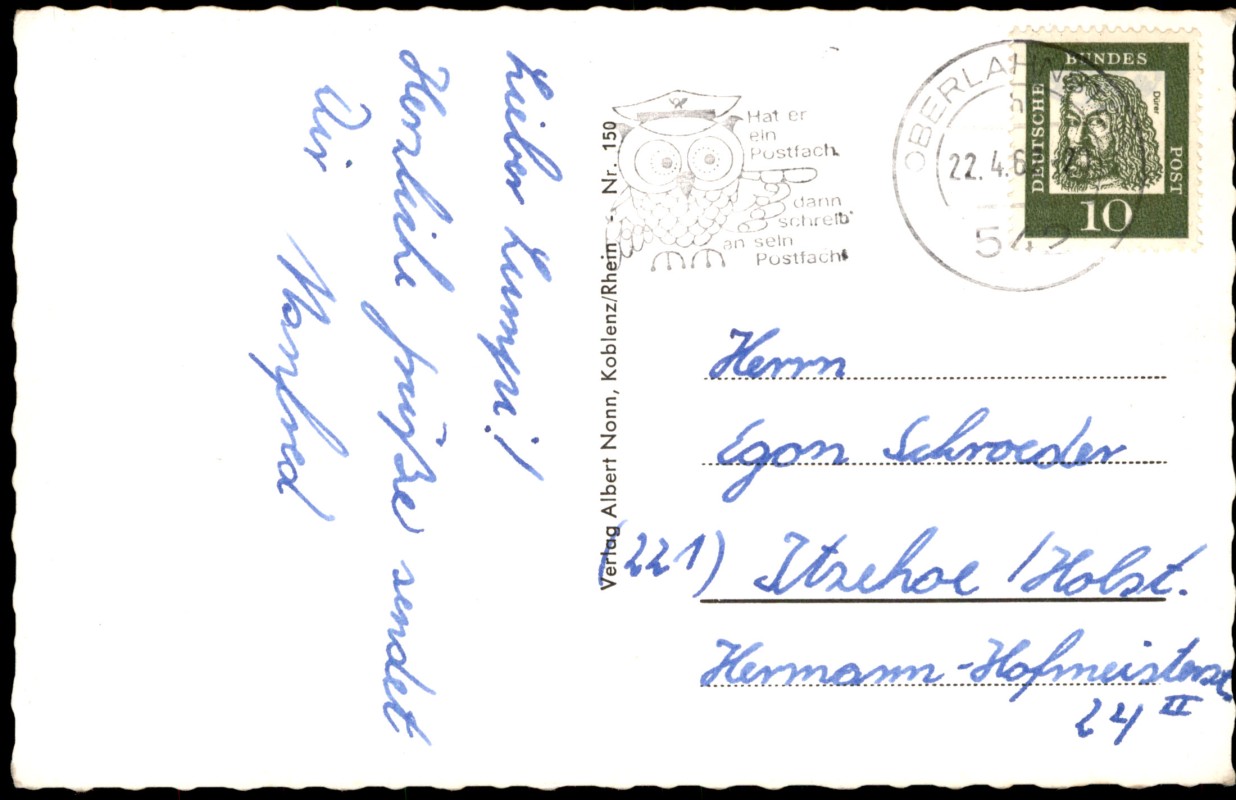 Lieber Lumpi!
Herzliche Grüße sendet
Dir
Manfred
Verlag Albert Nonn, Koblenz/Rhein - Nr. 150
Hat er
ein
Postfach,
dann
schreib'
an sein
Postfach!
OBERLAHN
22.4.6
542
DEUTSCHE
BUNDES
POST
Dürer
10
Herrn
Egon Schroeder
(221) Itzehoe /Holst.
Hermann-Hofmeisterst.
24 II